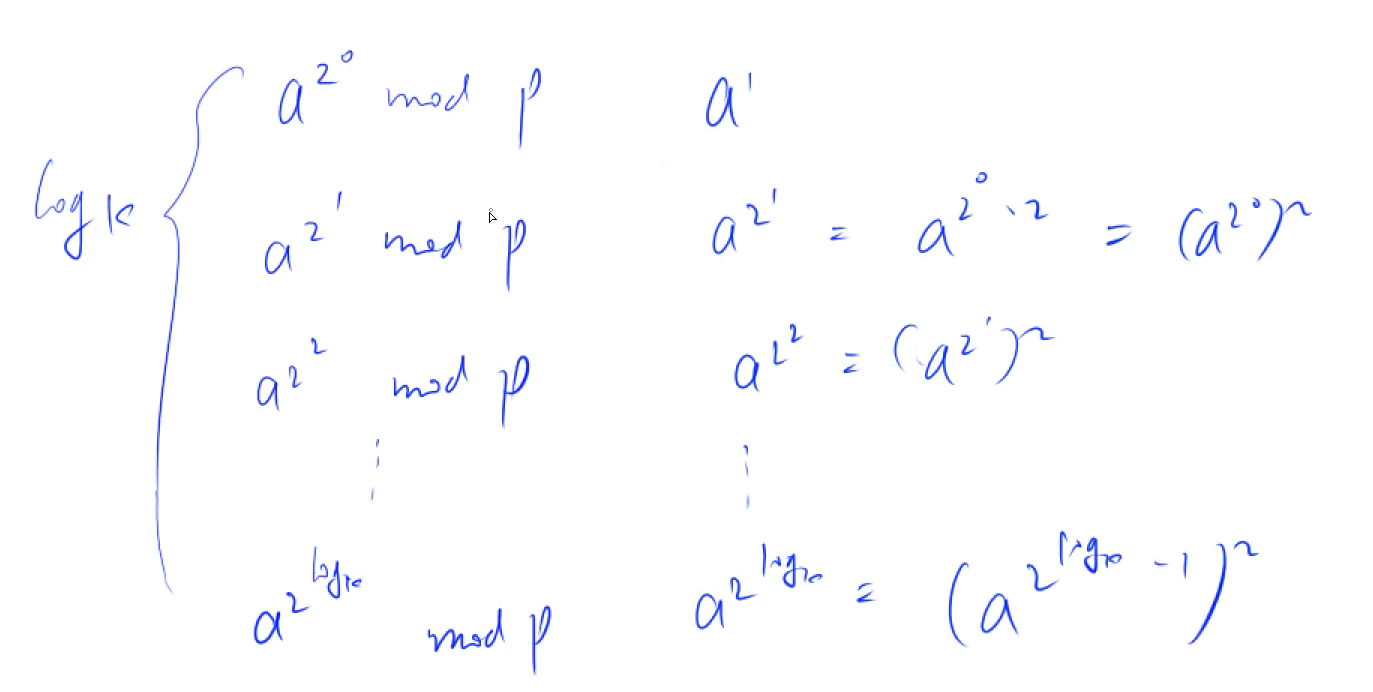 a^{2^0} mod p    a^1
log k    a^{2^1} mod p    a^{2^1} = a^{2^0 · 2} = (a^{2^0})^2
a^{2^2} mod p    a^{2^2} = (a^{2^1})^2
⋮    ⋮
a^{2^{log k}} mod p    a^{2^{log k}} = (a^{2^{log k - 1}})^2